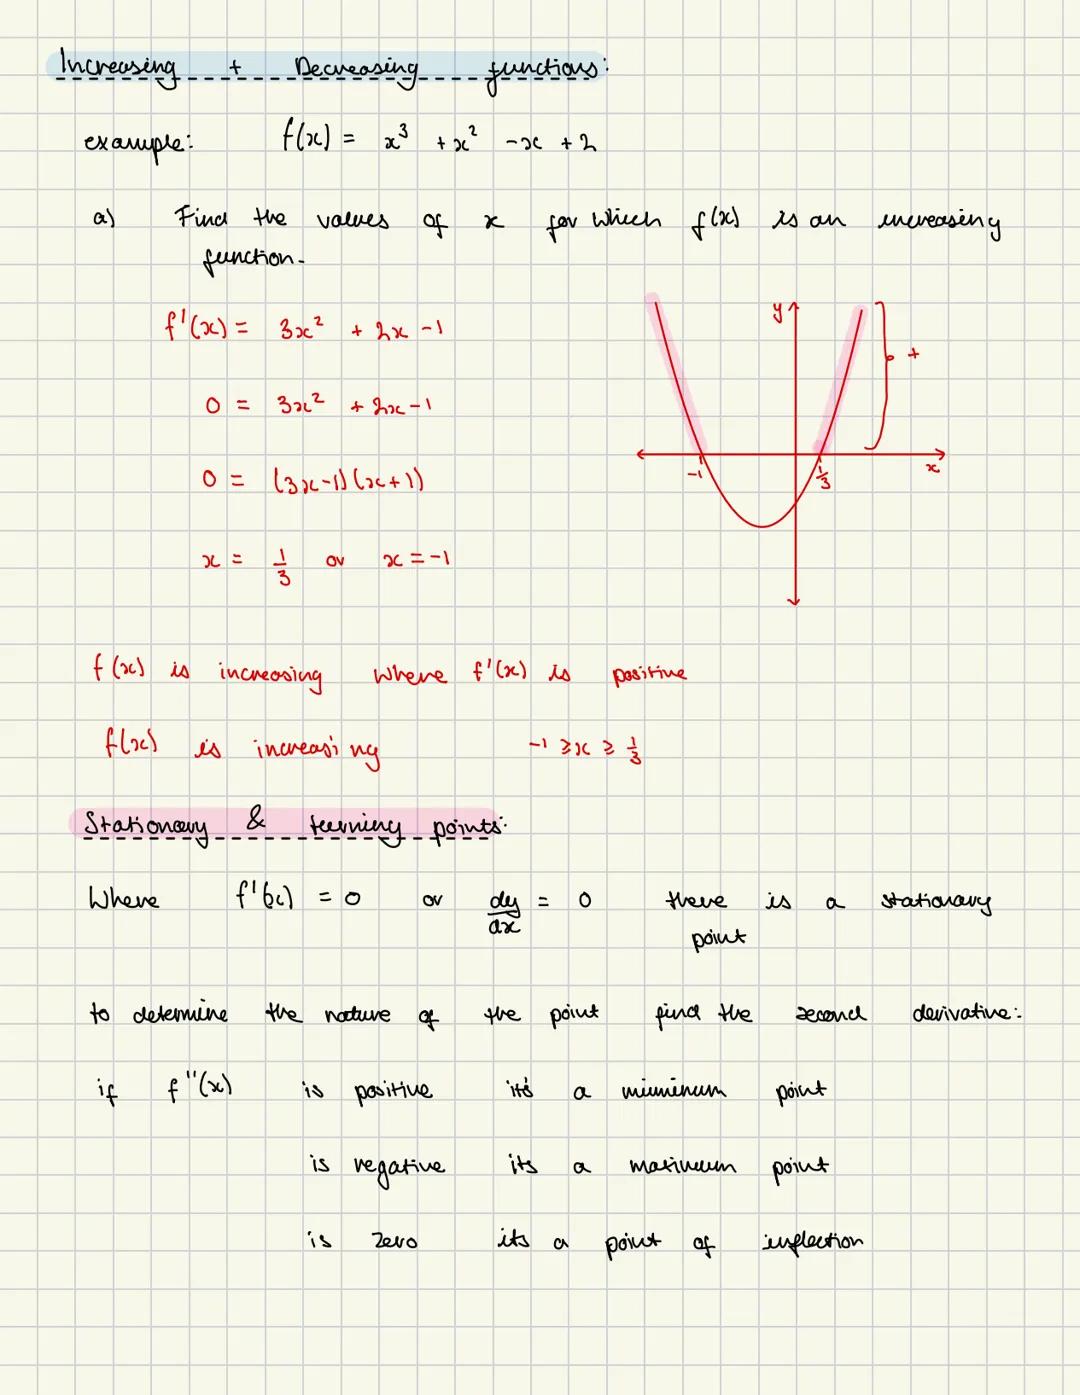 Increasing + Decreasing functions:
example: f(x) = x³ + x² - x + 2
a) Find the values of x for which f(x) is an increasing
function.
f'(x) = 3x² + 2x - 1
0 = 3x² + 2x - 1
0 = (3x-1)(x+1)
x = 1/3 or x = -1
y
+
-1
1/3
x
f(x) is increasing where f'(x) is positive
f(x) is increasing -1 ≥ x ≥ 1/3
Stationary & turning points:
Where f'(x) = 0 or dy/dx = 0 there is a stationary
point
to determine the nature of the point find the second derivative:
if f''(x) is positive it's a minimum point
is negative its a maximum point
is zero its a point of inflection